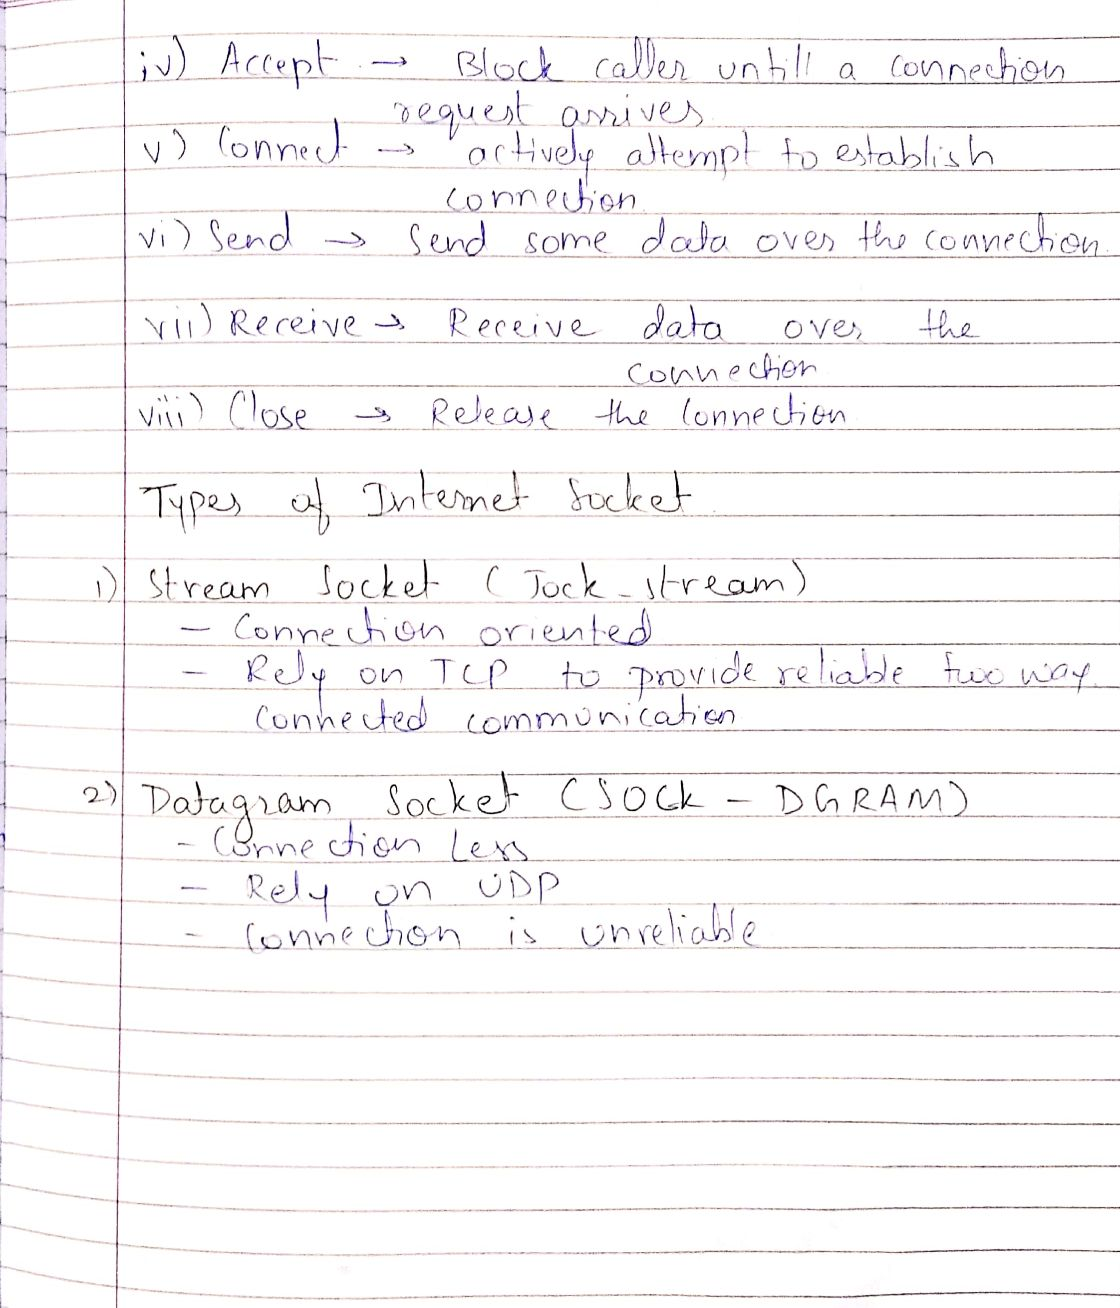 iv) Accept → Block caller untill a connection
request arrives
v) Connect → actively attempt to establish
connection
vi) Send → Send some data over the connection.
vii) Receive → Receive data over the
connection
viii) Close → Release the connection
Types of Internet Socket
1) Stream Socket (Sock-stream)
- Connection oriented
- Rely on TCP to provide reliable two way
connected communication
2) Datagram Socket (SOCK - DGRAM)
- Connection Less
- Rely on UDP
- Connection is unreliable